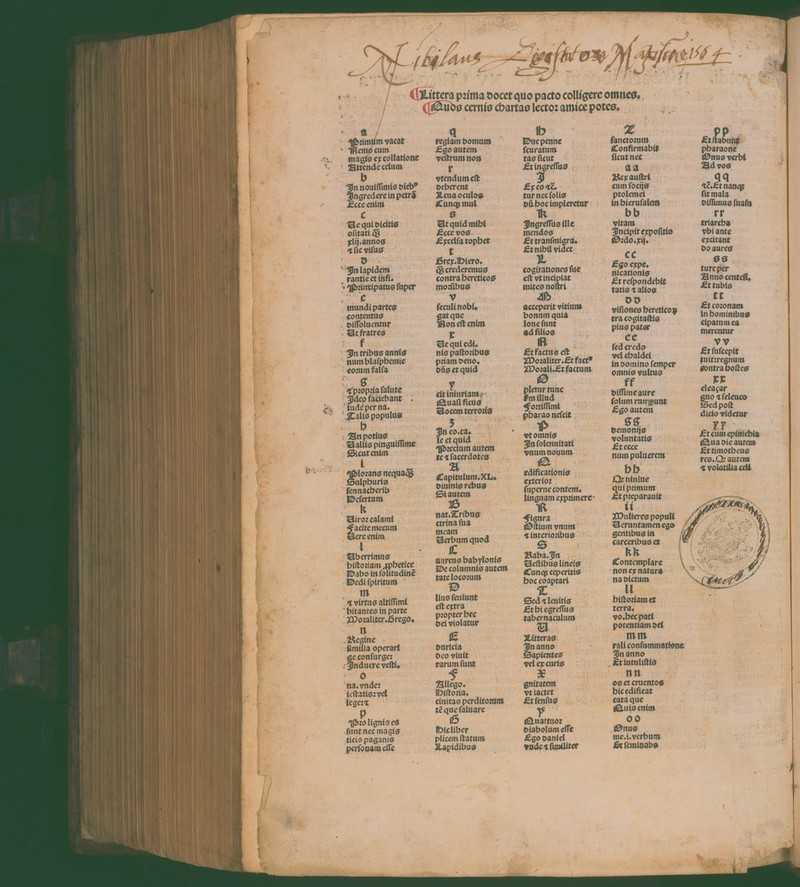 Littera prima docet quo pacto colligere omnes.
Quos cernis chartas lector amice potes.
a
Primum vacat
Nemo cum
magis ex collatione
Attende celum
b
In nouissimis dieb⁹
Ingredere in petrā
Ecce enim
c
Ue qui dicitis
ositati
xlij. annos
⁊ sic visus
d
In lapidem
rantie et insi.
Principatus super
e
mundi partes
contentus
dissoluentur
Ut fratres
f
In tribus annis
num blasphemie
eorum falsa
g
⁊ propria salute
Ideo faciebant
inde per na.
Talis populus
h
An potius
Uallis pinguissime
Sicut enim
i
Plorans nequaq̄
Sulphuris
sennacherib
Desertum
k
Uiros calami
Facite mecum
Uere enim
l
Uberrimus
historiam ꝓphetice
Dabo in solitudinē
Dedi spiritum
m
⁊ virtus altissimi
bitantes in parte
Moraliter. Grego.
n
Regine
similia operari
ge consurge:
Induere vesti.
o
na. vnde:
iestatis: vel
leger⁊
p
Pro lignis es
sunt nec magis
ticis paganis
personam esse
q
regiam domum
Ego autem
vestrum non
r
vtendum est
deberent
Lena oculos
Cunq; mul
s
Ut quid mihi
Ecce vos
Excelsa tophet
t
Grex. Hiero.
q̄ crederemus
contra hereticos
morsibus
v
seculi nobi.
gat que
Non est enim
x
Ue qui edi.
nis pastoribus
priam deuo.
dn̄s et quid
y
cit iniuriam
Quasi ficus
Uocem terroris
z
In eo. ca.
Ie et quid
Porcium autem
te ⁊ sacerdotes
A
Capitulum. XL.
diuinis rebus
Si autem
B
nat. Tribus
ctrina sua
meam
Uerbum quod
C
aureus babylonis
De columnis autem
tate locorum
D
lius seuiunt
est extra
propter hec
dei violatur
E
duricia
deo viuit
rarum sunt
F
Allego.
Historia.
ciuitas perditorum
tē que saluare
G
Hic liber
plicem statum
Lapidibus
H
Due penne
scuratum
tas sicut
Et ingressus
I
Ex eo ⁊c̄.
tur nec solis
dū hoc impleretur
K
Ingressus ille
mendos
Et transmigra.
Et nihil videt
L
cogitationes suę
est vt incipiat
mites nostri
M
acceperit vitium
bonum quia
lone sunt
ad filios
N
Et factus est
Moraliter. Et fact⁹
Morali. Et factum
O
pletur tunc
Em illud
Fortissimi
pharao nescit
P
vt omnis
In solennitati
vnum nouum
Q
edificationis
exterior
superne contem.
linguam exprimere
R
Figura
Ostium vnum
⁊ interioribus
S
Raba. In
Uestibus lineis
Cunq; ceperitis
hoc coaptari
T
Sed ⁊ leuitis
Et hi egressus
tabernaculum
U
Litteras
In anno
Sapientes
vel ex curis
X
gnitatem
vt iactet
Et sensus
Y
Quattuor
diabolum esse
Ego daniel
vnde ⁊ similiter
Z
sanctorum
Confirmabit
sicut nec
aa
Rex austri
cum socijs
ptolemei
in hierusalem
bb
vitam
Incipit expositio
Ordo. xij.
cc
Ego expe.
nicationis
Et respondebit
tatis ⁊ alios
dd
visiones hereticoꝝ
tra cogitastis
pius pater
ee
sed credo
vel chaldei
in domino semper
omnis vultus
ff
dissime aure
solum rumpunt
Ego autem
gg
demonijs
voluntatis
Et ecce
num puluerem
hh
Or niniue
qui primum
Et preparauit
ii
Mulieres populi
Ueruntamen ego
gentibus in
carceribus et
kk
Contemplare
non ex natura
na dictum
ll
historiam et
terra.
vo. hec pati
potentiam dei
mm
rali consummatione
In anno
Et intulistis
nn
os et cruentos
hic edificat
cata que
Quis enim
oo
Onus
me. i. verbum
Et seminabo
pp
Et stabunt
pharaone
Onus verbi
Ad vos
qq
⁊c̄. Et nanq;
sit mala
dissimus suasu
rr
triarcha
vbi ante
excitant
do aures
ss
ture per
Anno centesi.
Et tubis
tt
Et coronam
in hominibus
cipatum ea
merentur
vv
Et suscepit
tuit: regnum
contra hostes
xx
eleaçar
gno ⁊ seleuco
Sed post
dicio videtur
yy
Et cum epinichia
Qua die autem
Et timotheus
res. Or autem
⁊ volatilia celi